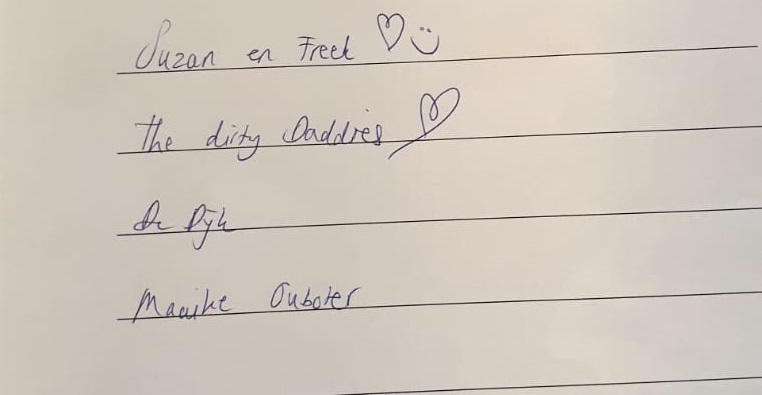 Suzan en Freek ♡☺
The dirty Daddies ♡
De Dijk
Maaike Ouboter